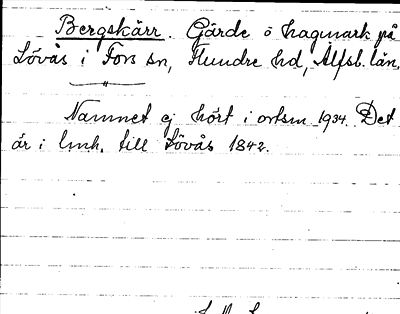 Bergskärr. Gärde o hagmark på
Lövås i Fors sn, Flundre hd, Älfsb. län.
Namnet ej hört i ortsm. 1934. Det
är i lmh. till Lövås 1842.